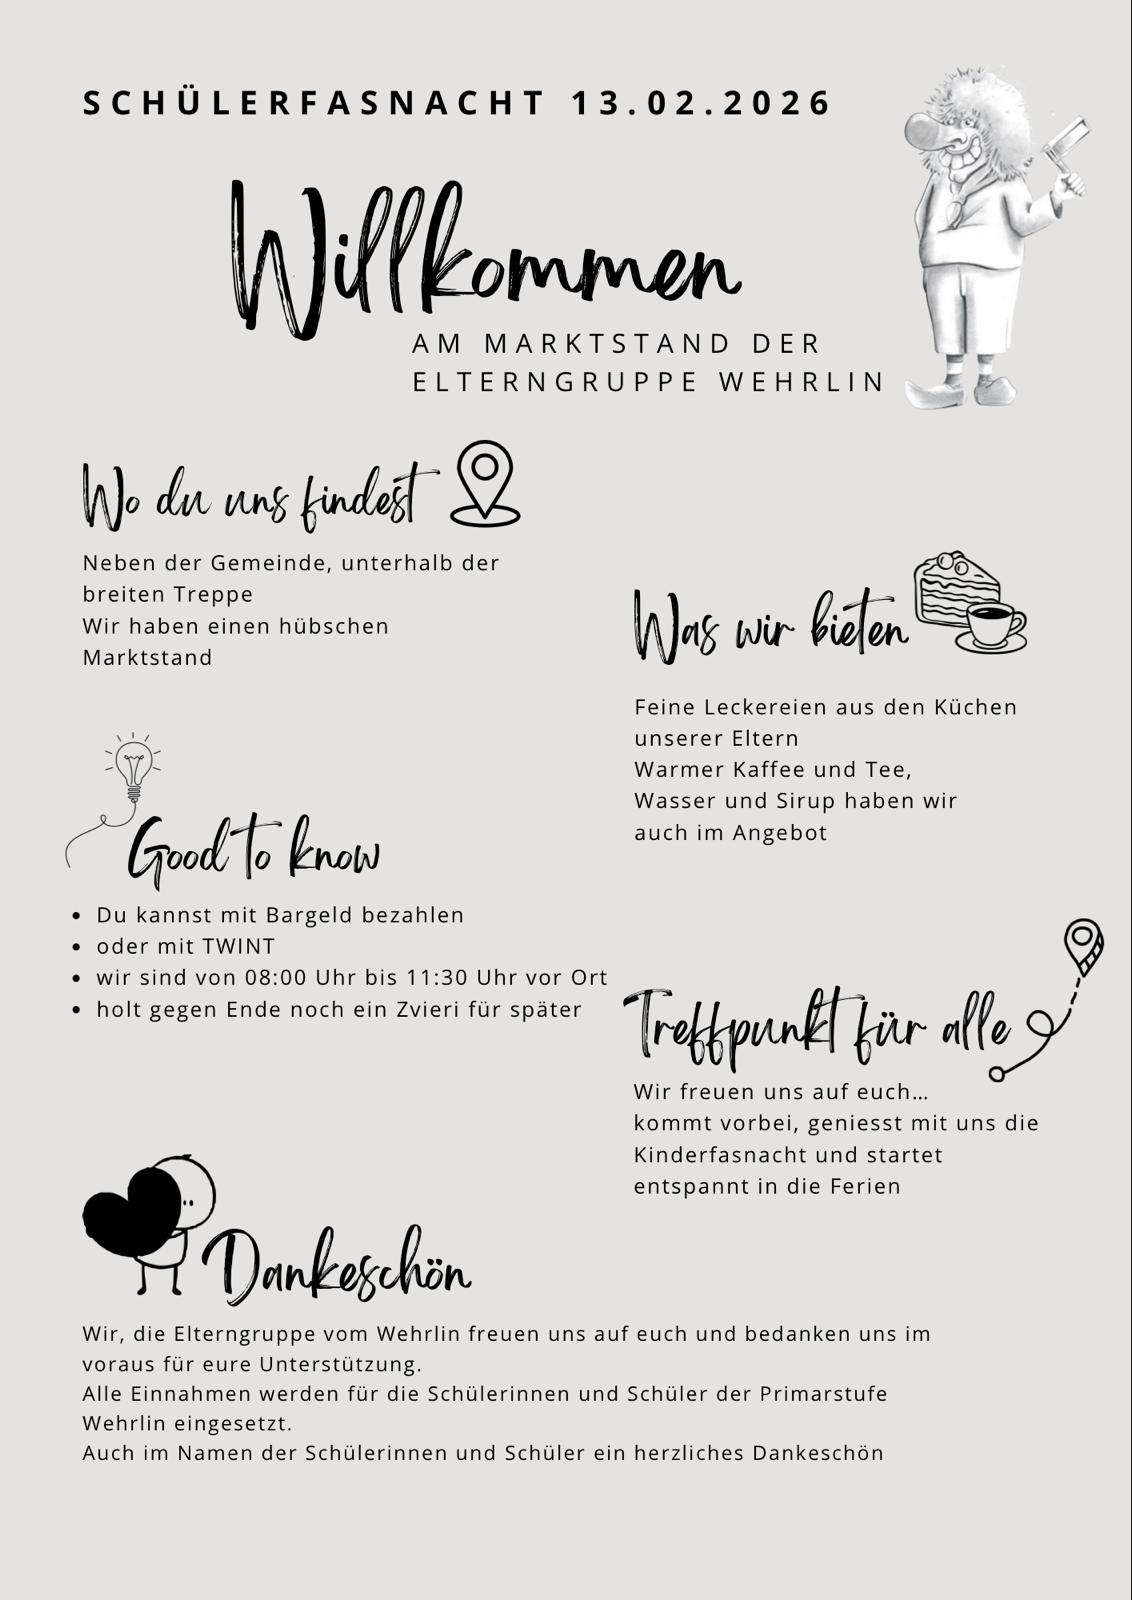 SCHÜLERFASNACHT 13.02.2026
Willkommen
AM MARKTSTAND DER
ELTERNGRUPPE WEHRLIN
Wo du uns findest
Neben der Gemeinde, unterhalb der
breiten Treppe
Wir haben einen hübschen
Marktstand
Was wir bieten
Feine Leckereien aus den Küchen
unserer Eltern
Warmer Kaffee und Tee,
Wasser und Sirup haben wir
auch im Angebot
Good to know
• Du kannst mit Bargeld bezahlen
• oder mit TWINT
• wir sind von 08:00 Uhr bis 11:30 Uhr vor Ort
• holt gegen Ende noch ein Zvieri für später
Treffpunkt für alle
Wir freuen uns auf euch...
kommt vorbei, geniesst mit uns die
Kinderfasnacht und startet
entspannt in die Ferien
Dankeschön
Wir, die Elterngruppe vom Wehrlin freuen uns auf euch und bedanken uns im
voraus für eure Unterstützung.
Alle Einnahmen werden für die Schülerinnen und Schüler der Primarstufe
Wehrlin eingesetzt.
Auch im Namen der Schülerinnen und Schüler ein herzliches Dankeschön